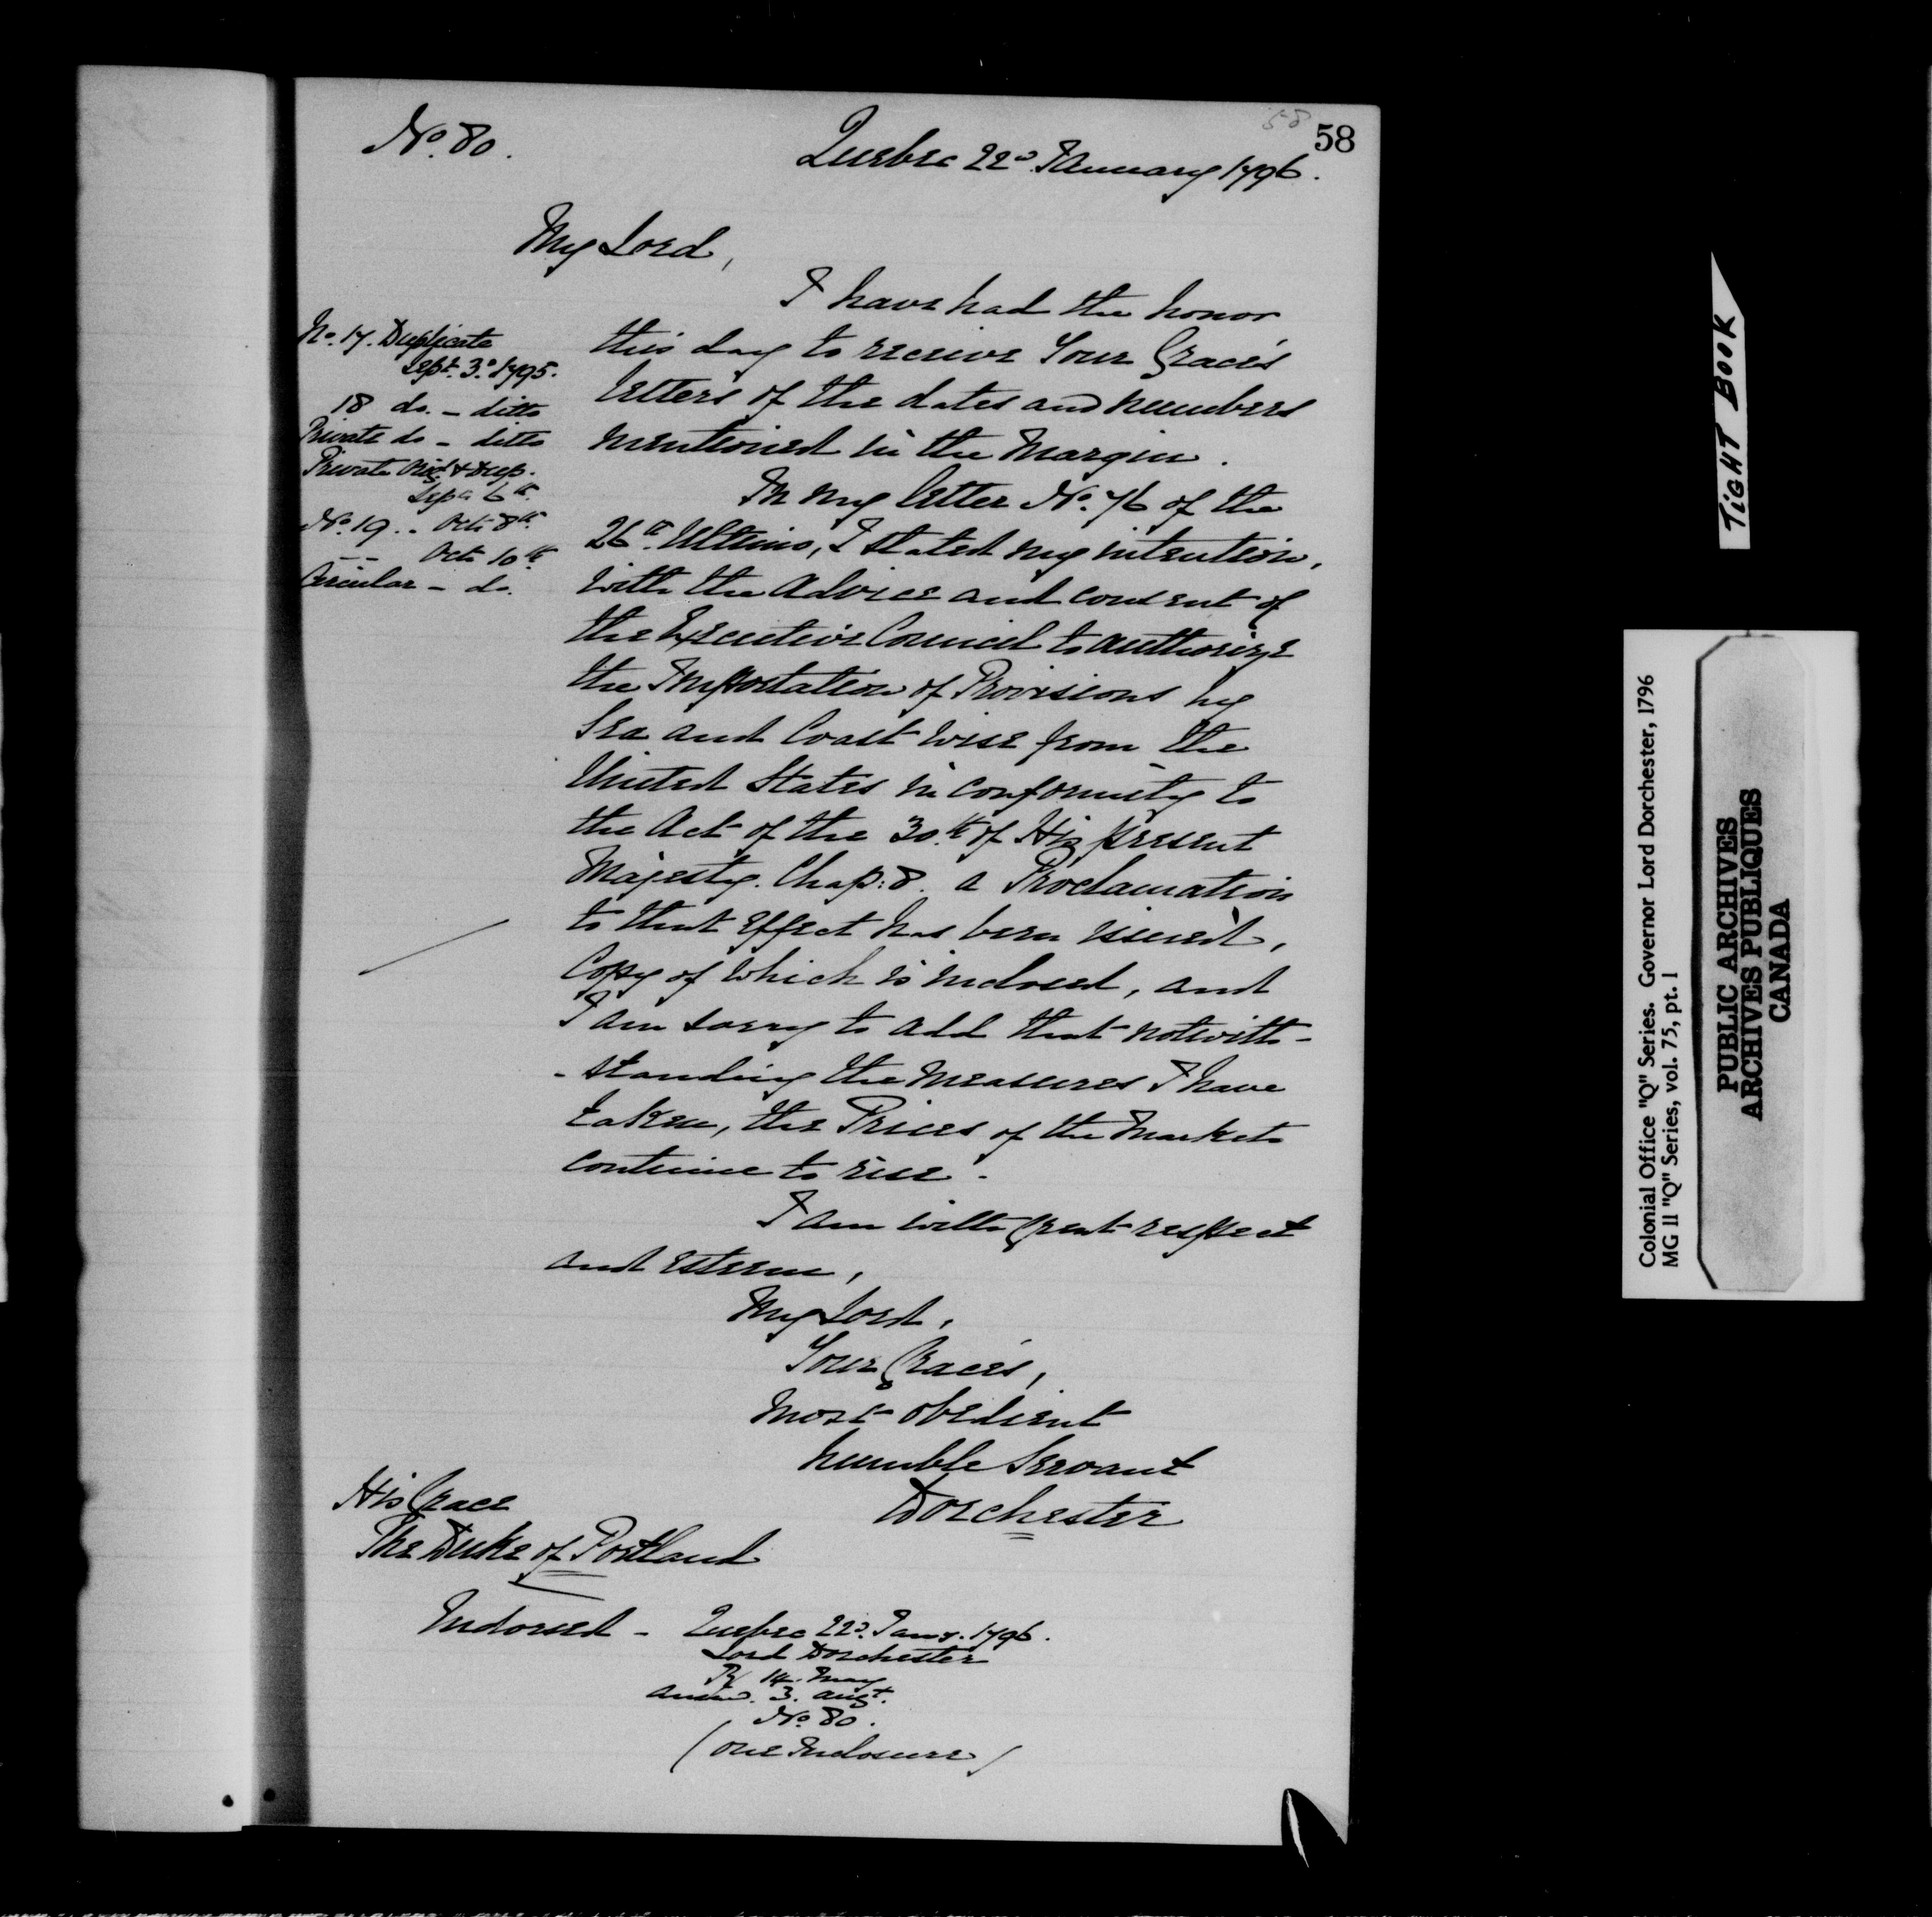 58
58
No. 80.
Quebec 22d. January 1796.
My Lord,
I have had the honor
this day to receive Your Grace's
letters of the dates and numbers
mentioned in the Margin.
No. 17. Duplicate
Sept. 3d. 1795.
18 do. - ditto
Private do - ditto
Private Orig. & Dup.
Sepr. 6th.
No. 19 .. Octr. 8th.
-- Octr. 10th
Circular - do.
In my letter No. 76 of the
26th. Ultimo, I stated my intention,
with the advice and consent of
the Executive Council to authorize
the Importation of Provisions by
Sea and Coast wise from the
United States in conformity to
the Act of the 30th. of His present
Majesty. Chap: 8. a Proclamation
to that effect has been issued,
Copy of which is inclosed, and
I am sorry to add that notwith-
-standing the measures I have
taken, the Prices of the Markets
continue to rise.
I am with great respect
and esteem,
My Lord,
Your Grace's,
most obedient
humble Servant
Dorchester
His Grace
The Duke of Portland
Indorsed - Quebec 22d. Jany. 1796.
Lord Dorchester
R/ 14. May
Answd. 3. Augt.
No. 80.
(One Inclosure)
TIGHT BOOK
Colonial Office "Q" Series. Governor Lord Dorchester, 1796
MG 11 "Q" Series, vol. 75, pt. 1
PUBLIC ARCHIVES
ARCHIVES PUBLIQUES
CANADA